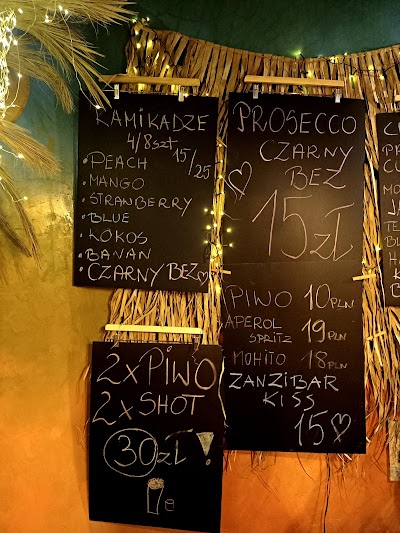 KAMIKADZE
4/8szt 15/25
• PEACH
• MANGO
• STRAWBERRY
• BLUE
• KOKOS
• BANAN
• CZARNY BEZ
PROSECCO
CZARNY
BEZ
15zł
PIWO 10PLN
APEROL
SPRITZ 19PLN
MOHITO 18PLN
ZANZIBAR
KISS
15
2xPIWO
2xSHOT
30zł!